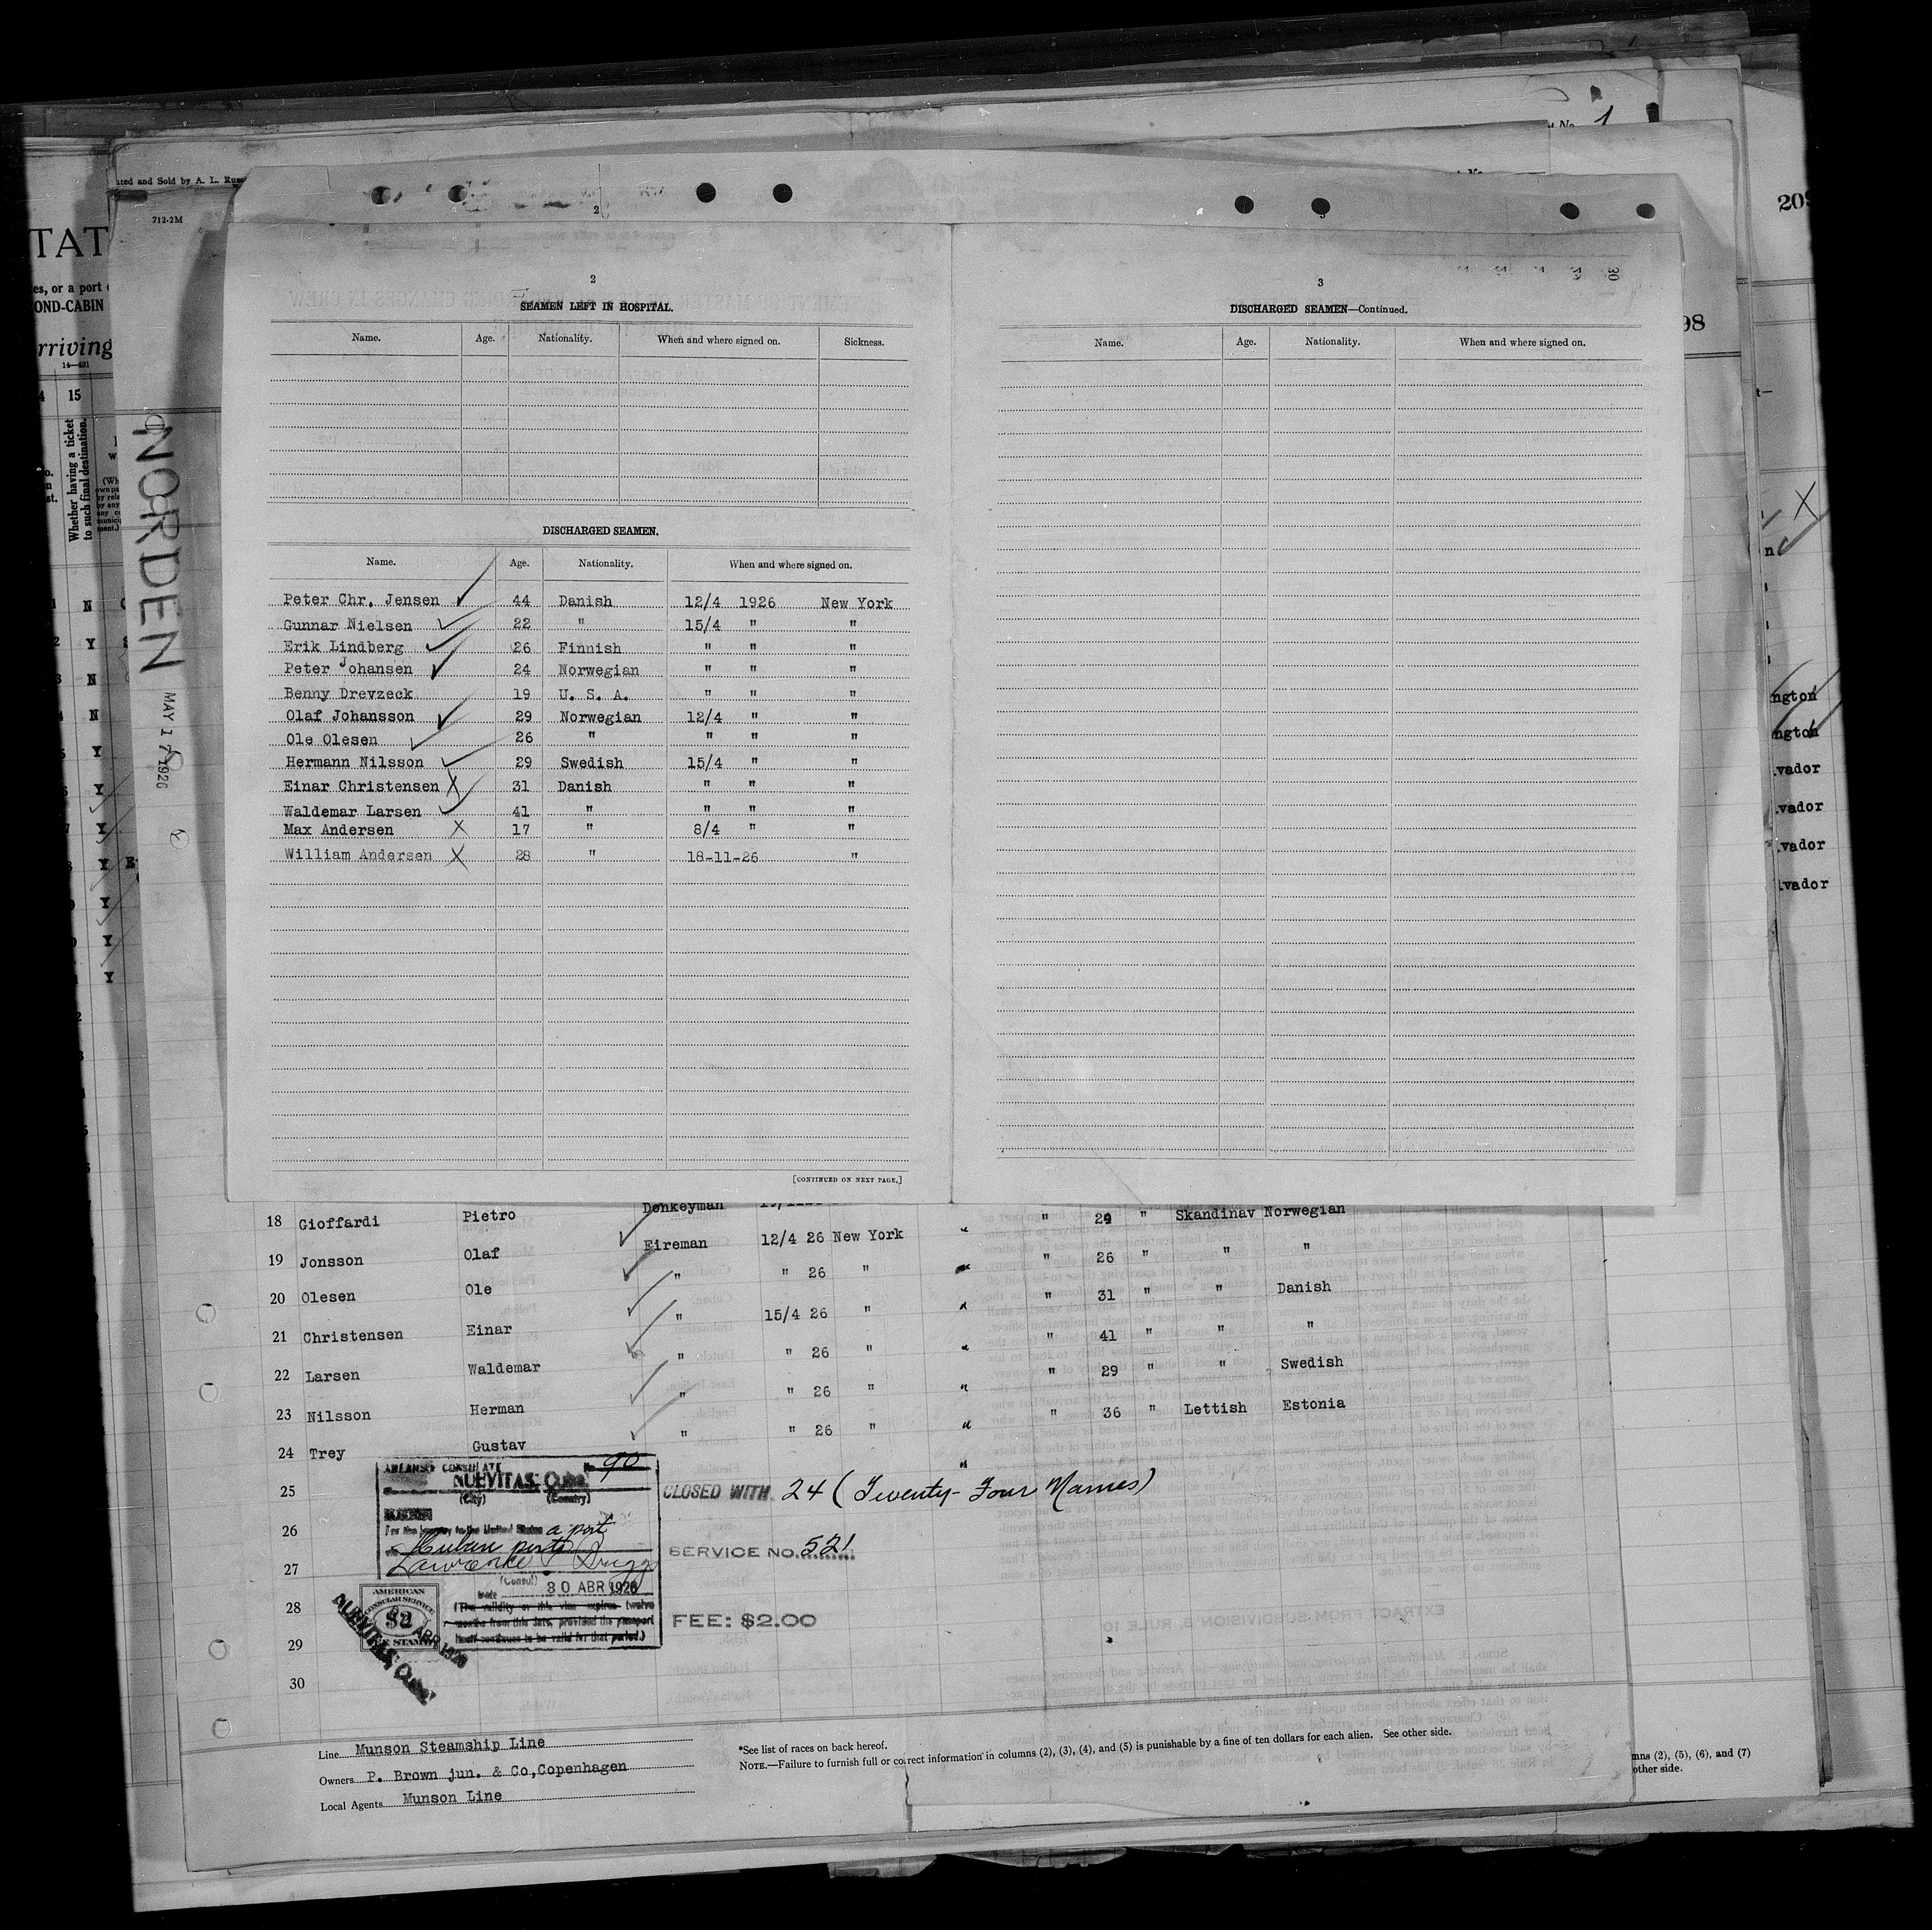 ated and Sold by A. L. Russ
712-2M
TAT
es, or a port
OND-CABIN
rriving
14—431
15
Whether having a ticket to such final destination.
NORDEN
MAY 17 1926
t No. 1
209
98
2
SEAMEN LEFT IN HOSPITAL.
Name. Age. Nationality. When and where signed on. Sickness.
DISCHARGED SEAMEN.
Name. Age. Nationality. When and where signed on.
Peter Chr. Jensen 44 Danish 12/4 1926 New York
Gunnar Nielsen 22 " 15/4 " "
Erik Lindberg 26 Finnish " " "
Peter Johansen 24 Norwegian " " "
Benny Drevzeck 19 U. S. A. " " "
Olaf Johansson 29 Norwegian 12/4 " "
Ole Olesen 26 " " " "
Hermann Nilsson 29 Swedish 15/4 " "
Einar Christensen X 31 Danish " " "
Waldemar Larsen 41 " " " "
Max Andersen X 17 " 8/4 " "
William Andersen X 28 " 18-11-26 "
[CONTINUED ON NEXT PAGE.]
3
DISCHARGED SEAMEN—Continued.
Name. Age. Nationality. When and where signed on.
ngton
ngton
vador
vador
lvador
lvador
18 Gioffardi Pietro Donkeyman
19 Jonsson Olaf Fireman 12/4 26 New York " 29 " Skandinav Norwegian
20 Olesen Ole " " 26 " " 26 " " "
21 Christensen Einar " 15/4 26 " " 31 " " Danish
22 Larsen Waldemar " " 26 " " 41 " " "
23 Nilsson Herman " " 26 " " 29 " " Swedish
24 Trey Gustav " " 26 " " 36 " Lettish Estonia
25
26
27
28
29
30
AMERICAN CONSULATE No. 90
NUEVITAS, Cuba
(City) (Country)
For the journey to the United States a port
via Cuban ports
Lawrence P. Briggs
(Consul)
Date 30 ABR 1926
(The validity of this visa expires twelve
months from this date, provided the passport
itself continues to be valid for that period.)
AMERICAN
CONSULAR SERVICE
$2
FEE STAMP
ABR 1926
NUEVITAS, Cuba
CLOSED WITH 24 (Twenty-Four Names)
SERVICE NO. 521
FEE: $2.00
Line Munson Steamship Line
Owners P. Brown jun. & Co, Copenhagen
Local Agents Munson Line
*See list of races on back hereof.
NOTE.—Failure to furnish full or correct information in columns (2), (3), (4), and (5) is punishable by a fine of ten dollars for each alien. See other side.
mns (2), (5), (6), and (7)
other side.